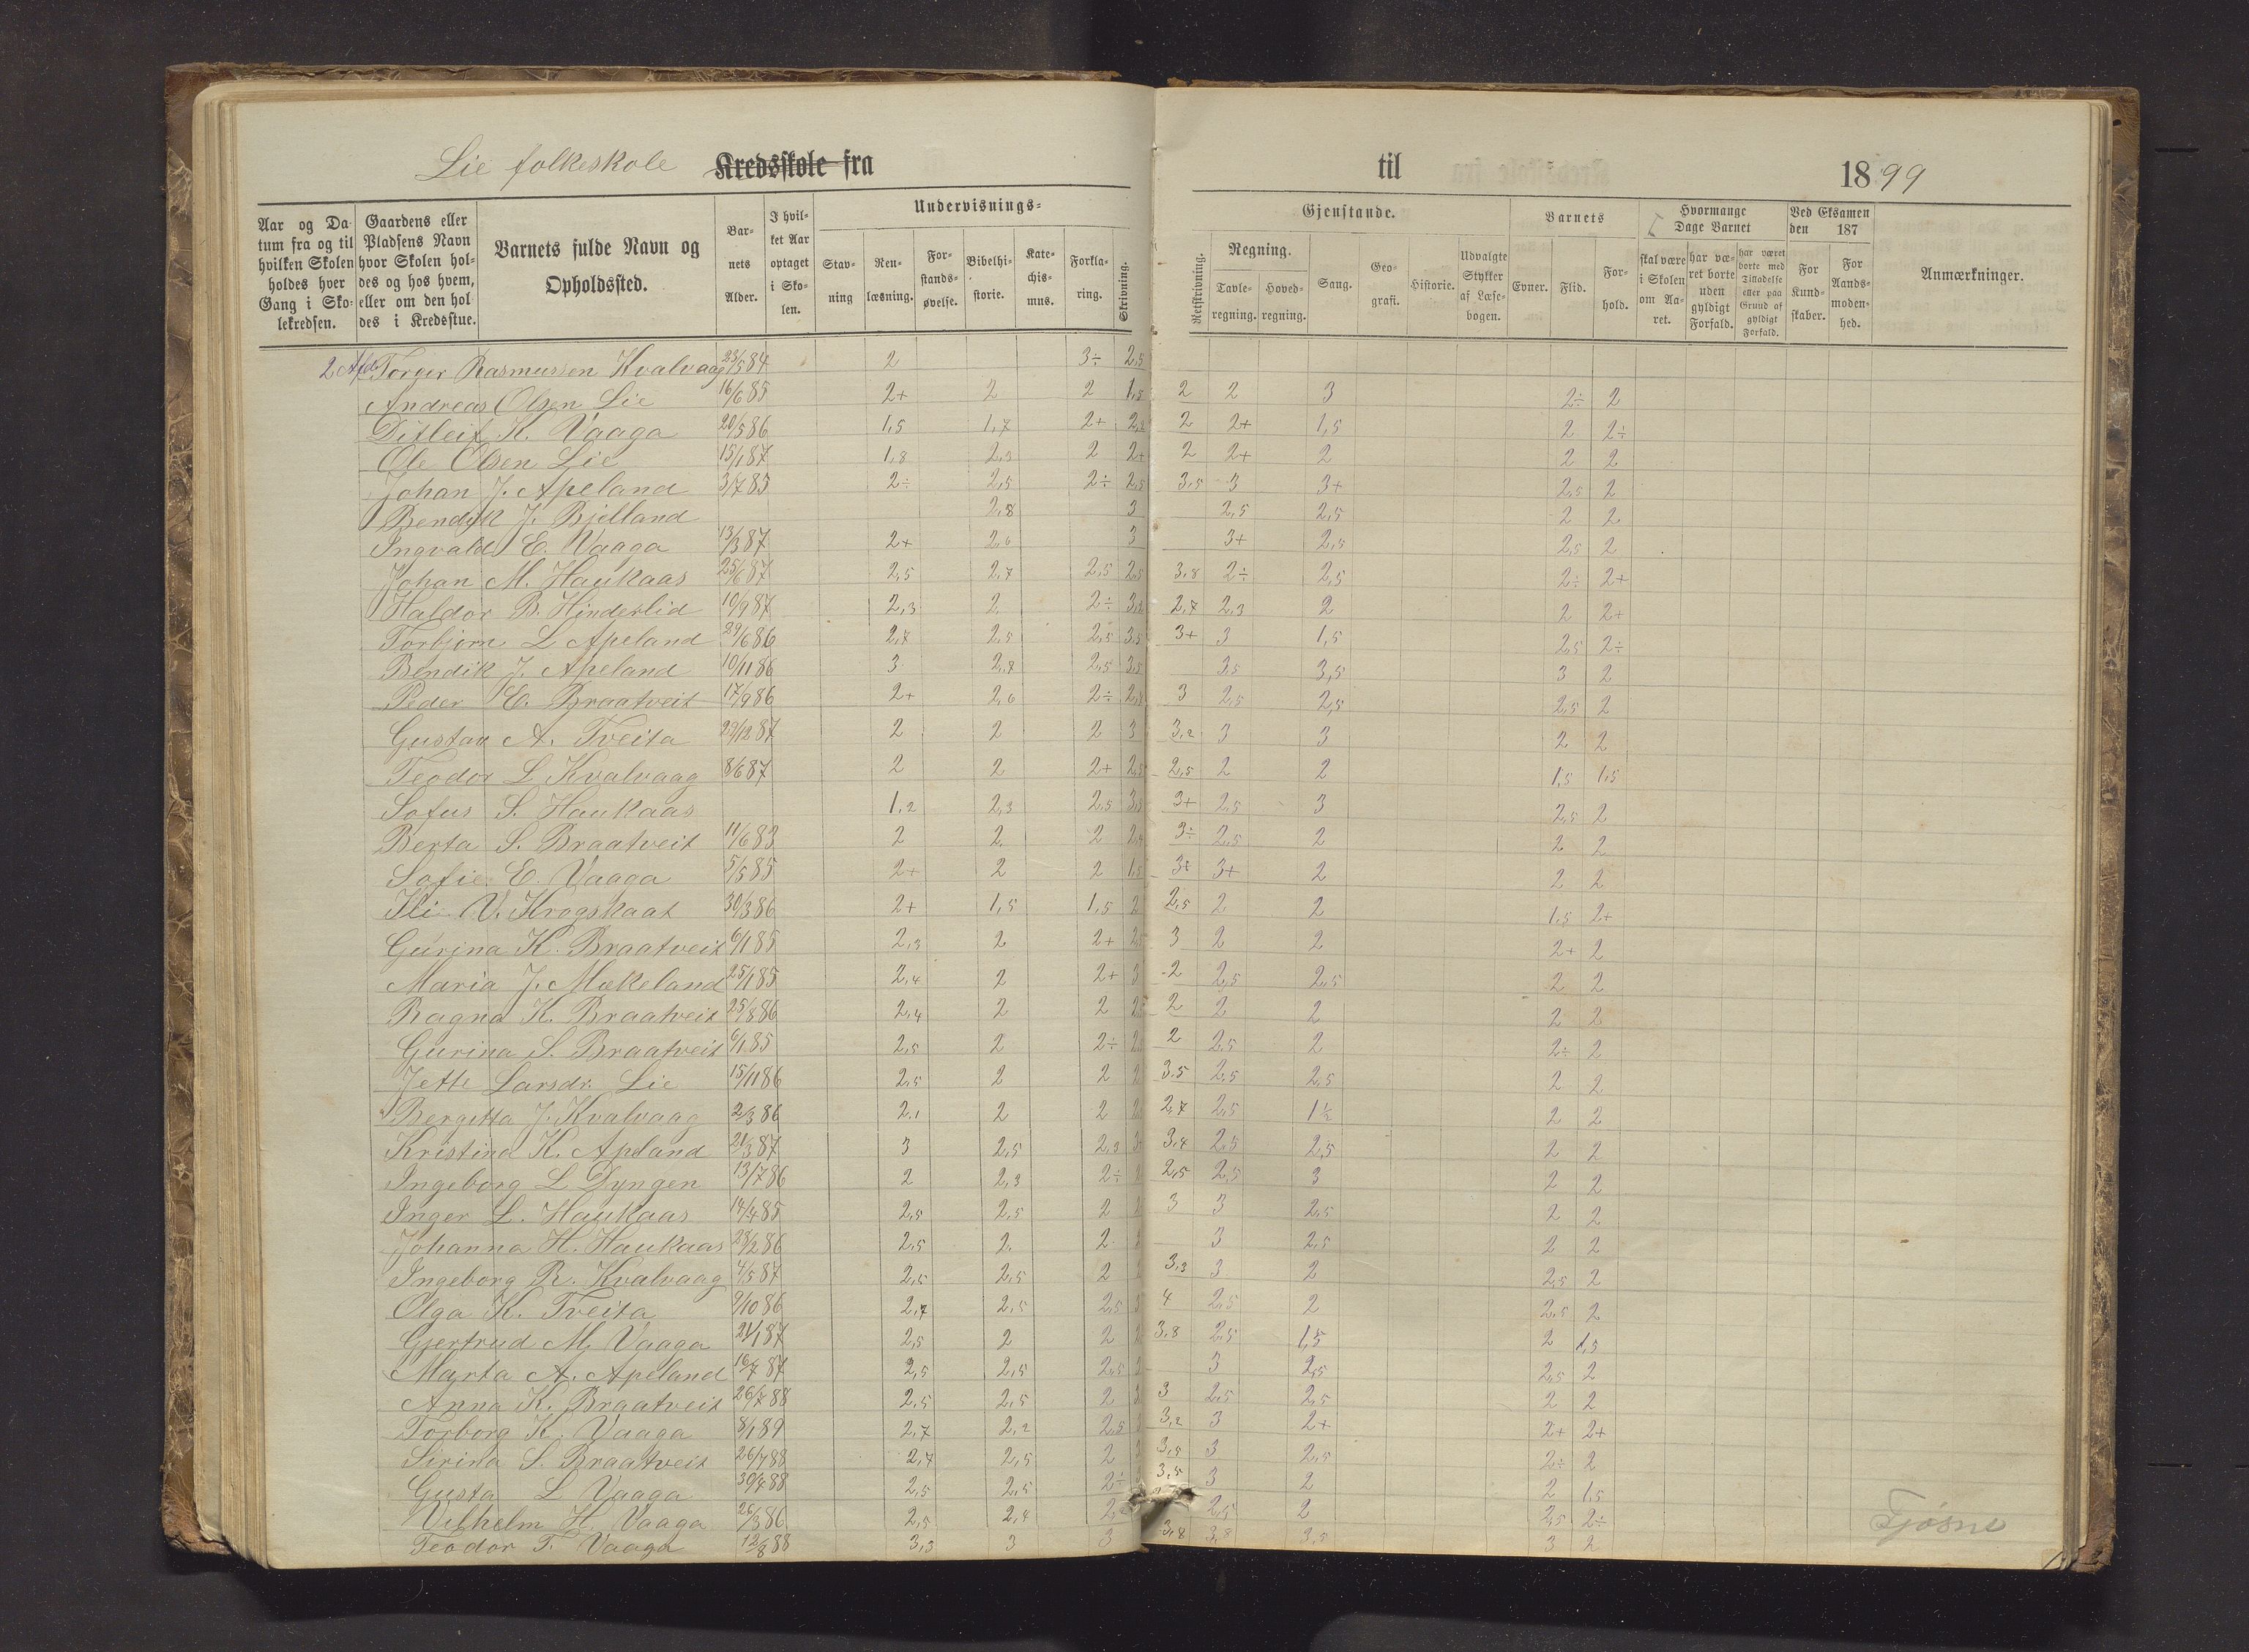 Lie folkeskole Kredsskole fra til 1899
Aar og Datum fra og til hvilken Skolen holdes hver Gang i Skolekredsen.
Gaardens eller Pladsens Navn hvor Skolen holdes og hos hvem, eller om den holdes i Kredsstue.
Barnets fulde Navn og Opholdssted.
Barnets Alder.
I hvilket Aar optaget i Skolen.
Undervisnings-Gjenstande.
Stavning
Renlæsning.
Forstandsøvelse.
Bibelhistorie.
Katechismus.
Forklaring.
Skrivning.
Retskrivning.
Regning.
Tavleregning.
Hovedregning.
Sang.
Geografi.
Historie.
Udvalgte Stykker af Læsebogen.
Barnets
Evner.
Flid.
Forhold.
Hvormange Dage Barnet
skal være i Skolen om Aaret.
har været borte uden gyldigt Forfald.
har været borte med Tilladelse eller paa Grund af gyldigt Forfald.
Ved Eksamen den 187
For Kundskaber.
For Aandsmodenhed.
Anmærkninger.
2 Afd. Torger Rasmussen Kvalvaag 23/5 84 2 3÷ 2,5
Andreas Olsen Lie 16/6 85 2+ 2 2 1,5 2 2 3 2÷ 2
Ditleif K. Vaaga 20/5 86 1,5 1,7 2+ 2 2+ 1,5 2 2÷
Ole Olsen Lie 15/1 87 1,8 2,3 2 2+ 2 2+ 2 2 2
Johan J. Apeland 3/7 85 2÷ 2,5 2÷ 2,5 3,5 3 3+ 2,5 2
Bendik J. Bjelland 2,8 3 2,5 2,5 2 2
Ingvald E. Vaaga 13/3 87 2+ 2,6 3 3+ 2,5 2,5 2
Johan M. Haukaas 25/6 87 2,5 2,7 2,5 2,5 3,8 2÷ 2,5 2÷ 2+
Haldor B. Hinderlid 10/9 87 2,3 2 2÷ 2,7 2,3 2 2 2+
Torbjørn L Apeland 29/6 86 2,7 2,5 2,5 3,5 3+ 3 1,5 2,5 2÷
Bendik J. Apeland 10/11 86 3 2,7 2,5 3,5 3,5 3,5 3 2
Peder E. Braatveit 17/9 86 2+ 2,6 2÷ 3 2,5 2,5 2,5 2
Gustav A. Tveita 29/12 87 2 2 2 3 3,2 3 3 2 2
Teodor L Kvalvaag 8/6 87 2 2 2+ 2,5 2,5 2 2 1,5 1,5
Sofus S. Haukaas 1,2 2,3 2,5 3+ 2,5 3 2,5 2
Berta S. Braatveit 11/6 83 2 2 2 3÷ 2,5 2 2 2
Sofie E. Vaaga 5/5 85 2+ 2 2 1,5 3+ 2 2 2
V. Krogskaat 30/3 86 2+ 1,5 1,5 2 2,5 2 2 1,5 2+
Gurina K. Braatveit 6/1 85 2,3 2 2+ 3 2 2 2+ 2
Maria J. Mækeland 25/1 85 2,4 2 2+ 3 2 2,5 2,5 2 2
Ragna K. Braatveit 25/8 86 2,4 2 2 2 2 2 2 2
Gurina S. Braatveit 6/1 85 2,5 2 2÷ 2 2,5 2 2÷ 2
Jette Larsdr. Lie 15/11 86 2,5 2 2 3.5 2,5 2,5 2 2
Bergitta J. Kvalvaag 2/3 86 2,1 2 2 2,7 2,5 1½ 2 2
Kristina K. Apeland 21/3 87 3 2,5 2,3 3,4 2,5 2,5 2 2
Ingeborg L Dyngen 13/7 86 2 2,3 2÷ 2,5 2,5 3 2 2
Inger L. Haukaas 14/4 85 2,5 2,5 2 3 3 2,5 2 2
Johanna H. Haukaas 28/2 86 2,5 2 2 3 2,5 2 2
Ingeborg R. Kvalvaag 4/5 87 2,5 2,5 2 3,3 3 2 2,5 2
Olga K. Tveita 9/10 86 2,7 2,5 2,5 4 2,5 2 2,5 2
Gjertrud M. Vaaga 21/1 87 2,5 2 2 3,8 2,5 1,5 2 1,5
Marta A. Apeland 16/7 87 2,5 2,5 2,5 3 2,5 2,5 2
Anna K. Braatveit 26/7 88 2,5 2,5 2 3 2,5 2,5 2 2
Torborg K. Vaaga 8/1 89 2,7 2,2 2,5 3,2 3 2+ 2+ 2+
Sirina S. Braatveit 26/7 88 2,7 2,5 2 3,5 3 2,5 2÷ 2
Gusta L Vaaga 30/4 88 2,5 2,5 2÷ 3,5 3 2 2 1,5
Vilhelm H Vaaga 26/3 86 2,5 2,4 2,5 2 2,5 2÷
Teodor T. Vaaga 12/8 88 3,3 3 3 3,8 3,8 3,5 3 2
Fjøsne